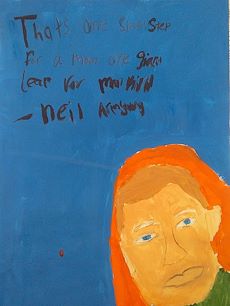 That's one small Step
for a man one giant
leap for mankind
- Neil Armstrong